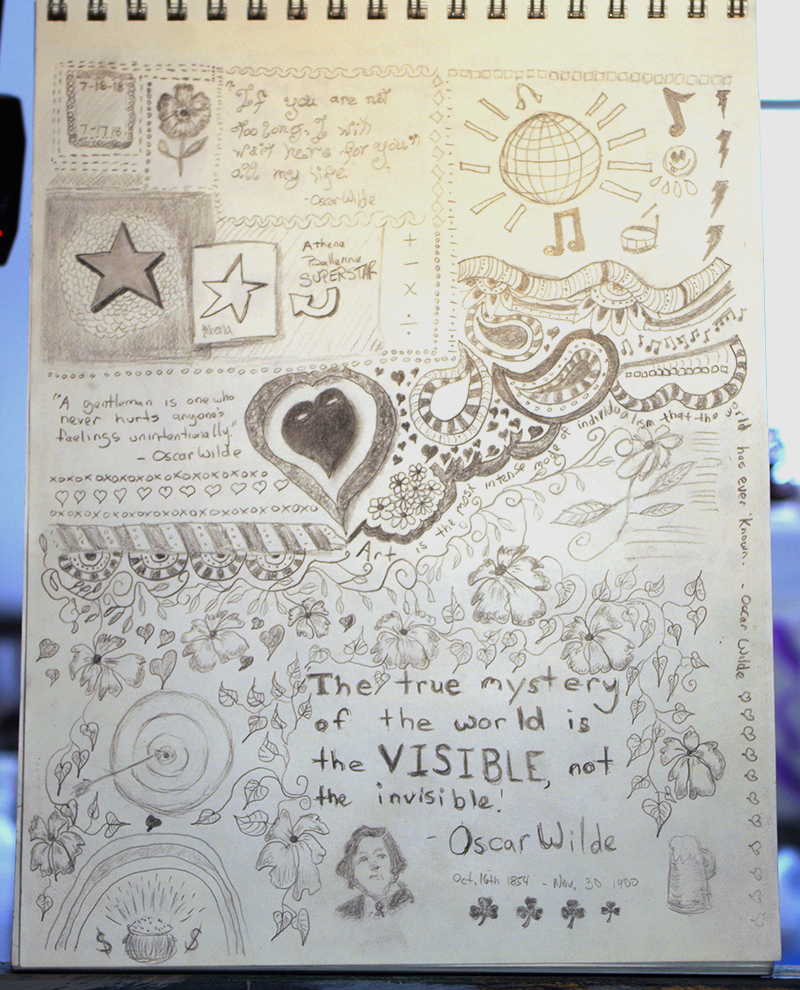 7-16-18
7-17-18
"If you are not
too long, I will
wait here for you"
all my life.
-Oscar Wilde
Athena
Ballerina
SUPERSTAR
Athena
+
−
×
÷
"A gentleman is one who
never hurts anyone's
feelings unintentionally."
- Oscar Wilde
xoxoxoxoxoxoxoxoxoxox
oxoxoxoxoxoxoxoxoxoxo
Art is the most intense mode of individualism that the world has ever known. - Oscar Wilde
The true mystery
of the world is
the VISIBLE, not
the invisible!
- Oscar Wilde
Oct. 16th 1854 - Nov. 30 1900
$ $